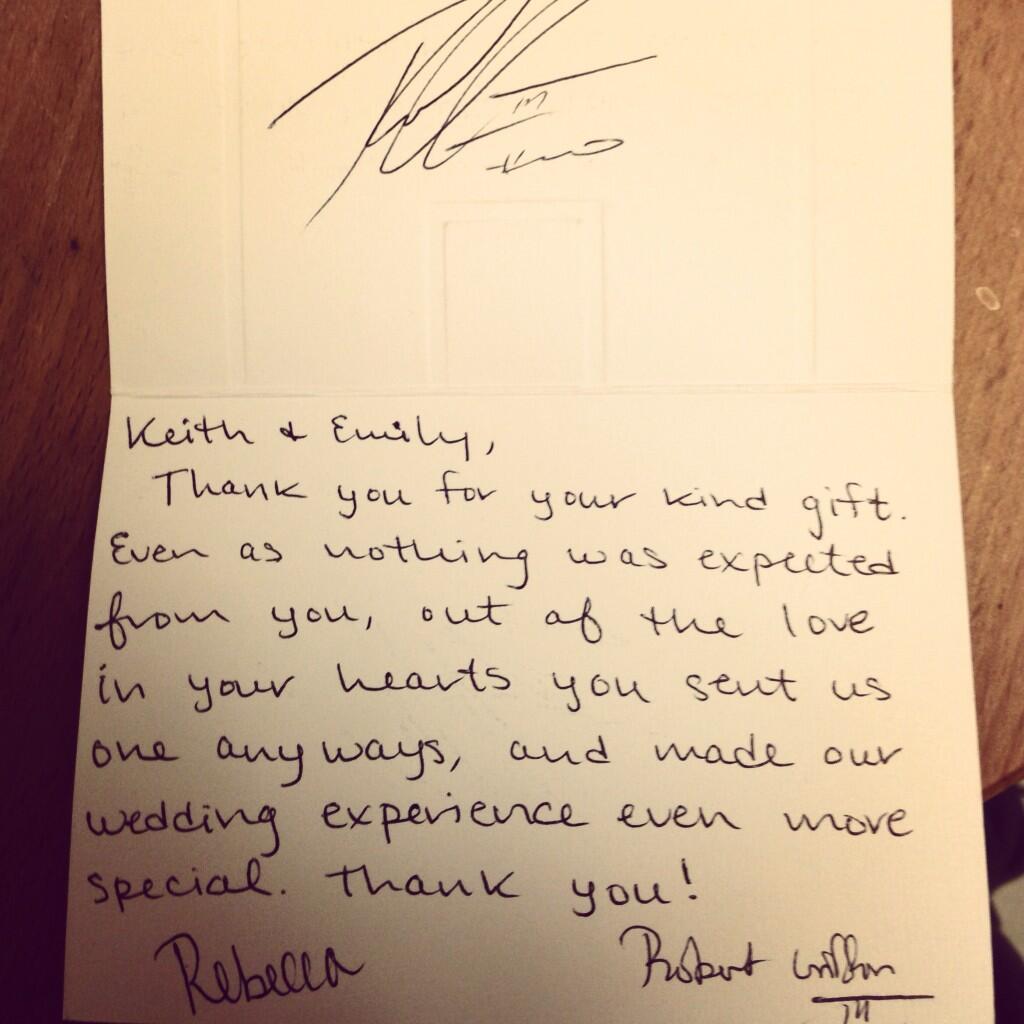 Keith & Emily,
Thank you for your kind gift.
Even as nothing was expected
from you, out of the love
in your hearts you sent us
one anyways, and made our
wedding experience even more
special. Thank you!
Rebecca Robert
III